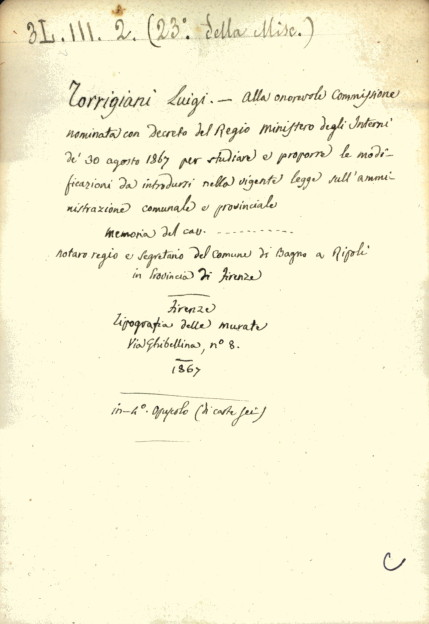 3L.III. 2. (23º. della Misc.)
Torrigiani Luigi. — Alla onorevole Commissione
nominata con Decreto del Regio Ministero degli Interni
de' 30 agosto 1867 per studiare e proporre le modi-
ficazioni da introdursi nella vigente legge sull'ammi-
nistrazione comunale e provinciale
Memoria del cav. - - - - - - - - - - -
notaro regio e segretario del Comune di Bagno a Ripoli
in Provincia di Firenze
Firenze
Tipografia delle Murate
Via Ghibellina, nº 8.
1867
in-4º. Opuscolo (di carte sei)
C